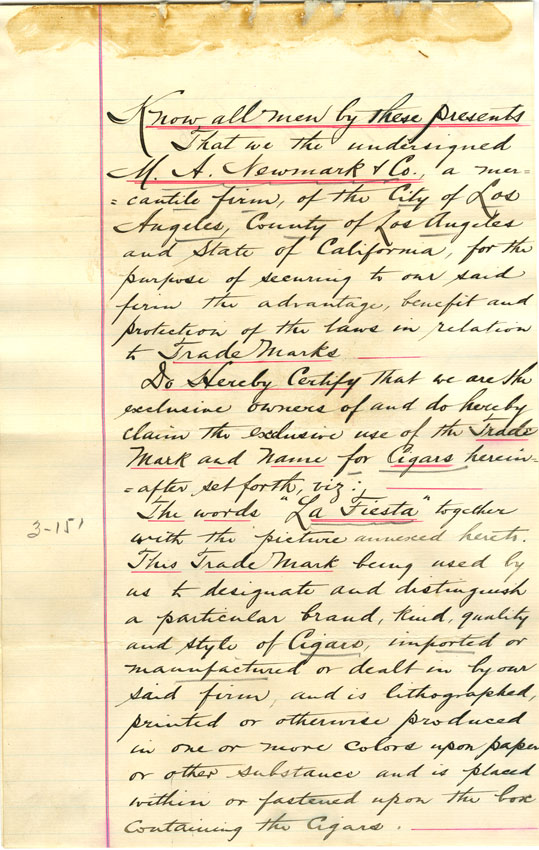 Know all men by these presents
That we the undersigned
M. A. Newmark & Co., a mer-
=cantile firm, of the City of Los
Angeles, County of Los Angeles
and State of California, for the
purpose of securing to our said
firm the advantage, benefit and
protection of the laws in relation
to Trade Marks
Do Hereby Certify that we are the
exclusive owners of and do hereby
claim the exclusive use of the Trade
Mark and Name for Cigars herein=
=after set forth, viz:
The words "La Fiesta" together
with the picture annexed hereto.
This Trade Mark being used by
us to designate and distinguish
a particular brand, kind, quality
and style of Cigars, imported or
manufactured or dealt in by our
said firm, and is lithographed,
printed or otherwise produced
in one or more colors upon paper
or other substance and is placed
within or fastened upon the box
containing the Cigars.
3-151